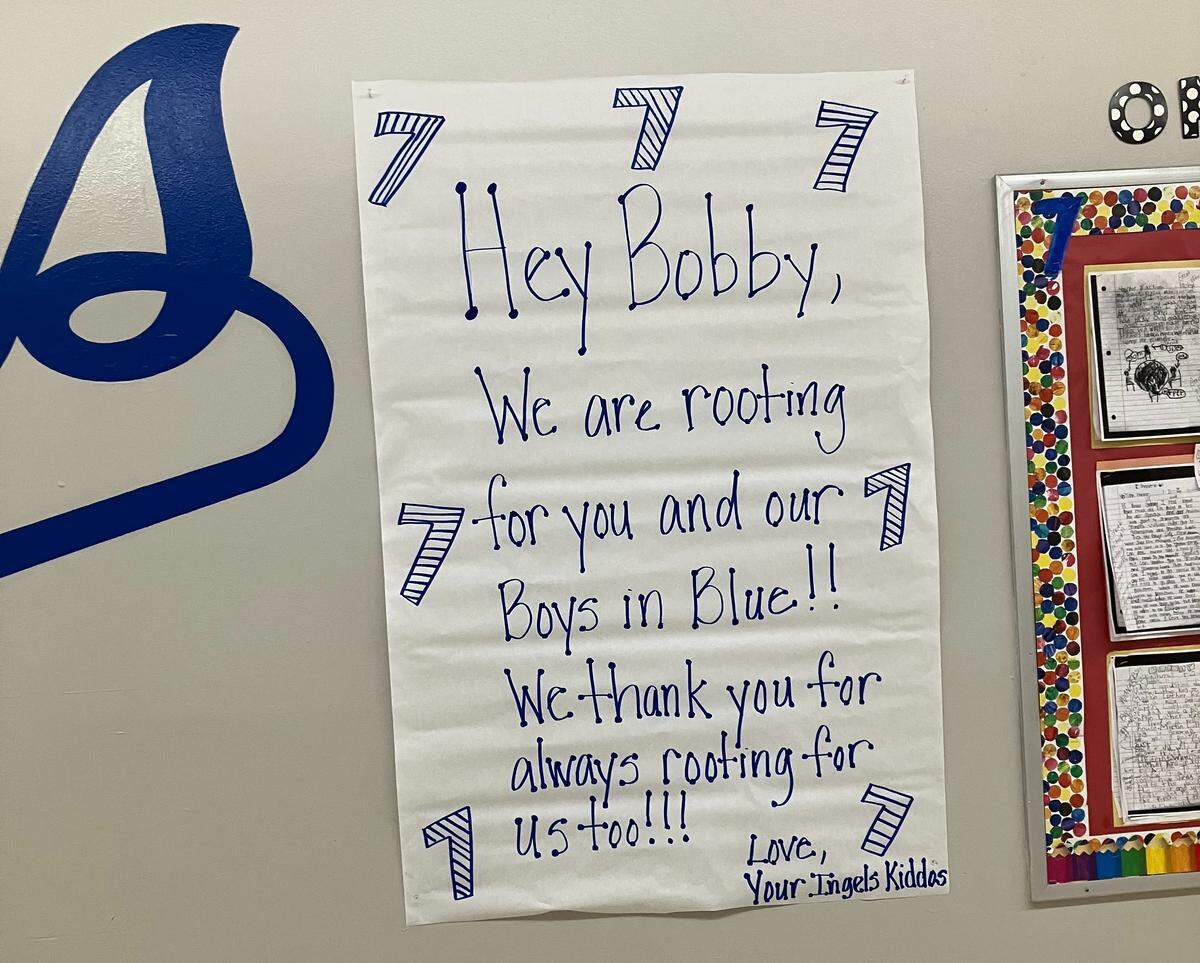 7 7 7
Hey Bobby,
We are rooting
for you and our
7 7
Boys in Blue!!
We thank you for
always rooting for
us too!!!
7 7
Love,
Your Ingels Kiddos
7